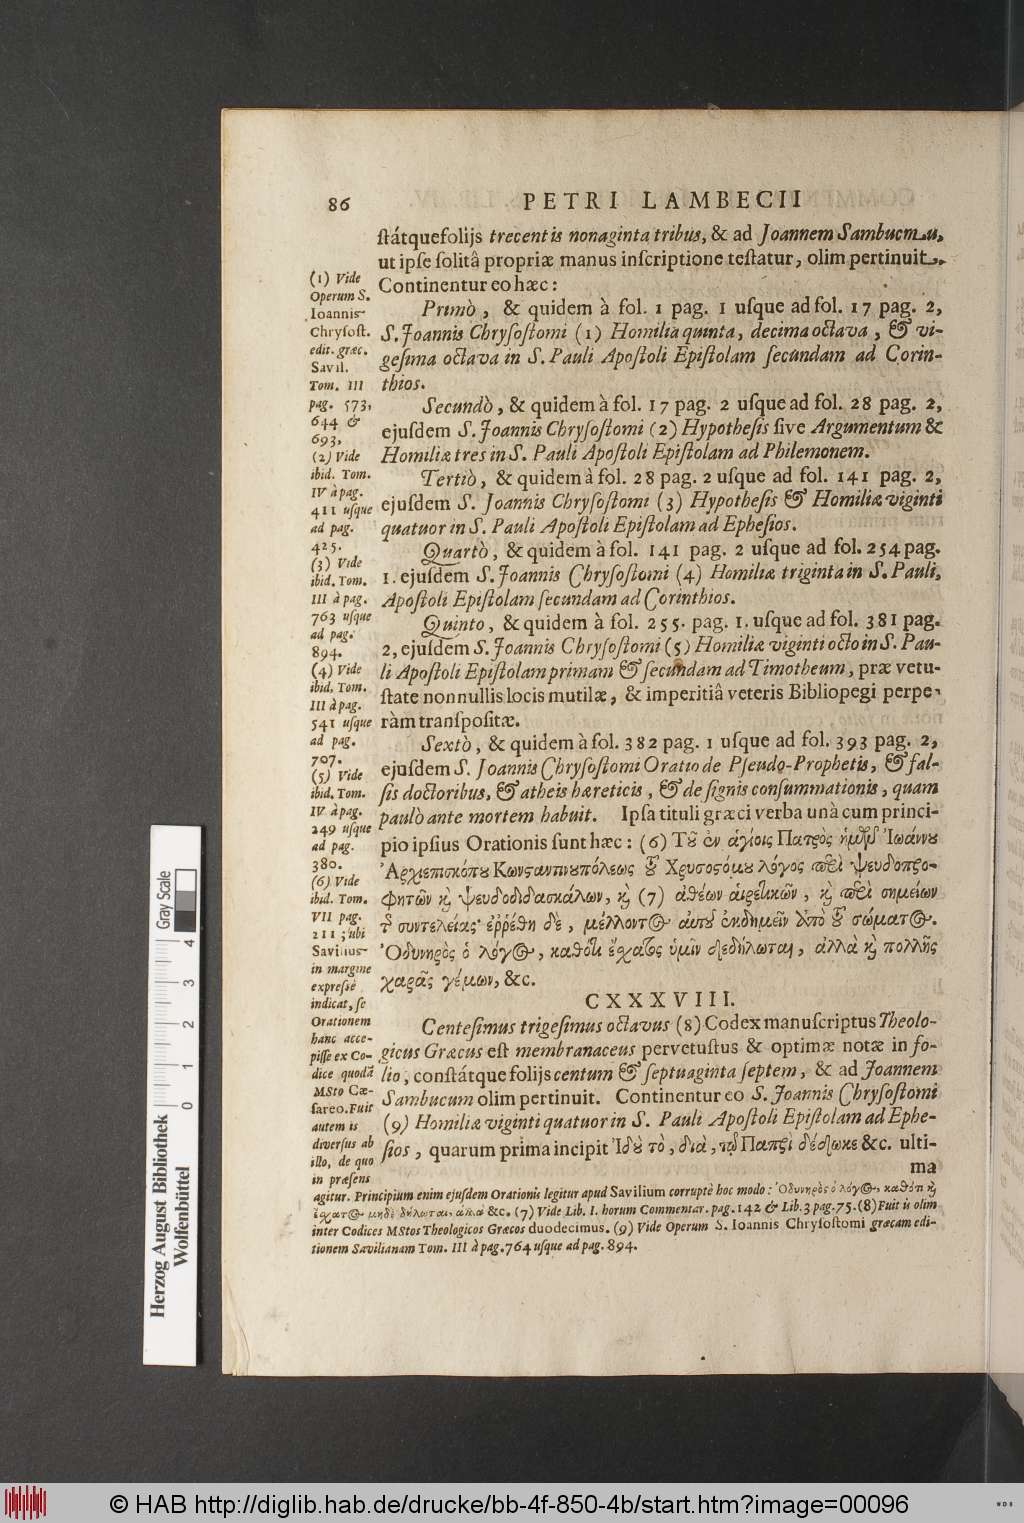 86 PETRI LAMBECII
ſtátque folijs trecentis nonaginta tribus, & ad Joannem Sambucum,
ut ipſe ſolitâ propriæ manus inſcriptione teſtatur, olim pertinuit.
Continentur eo hæc:
Primò, & quidem à fol. 1 pag. 1 uſque ad fol. 17 pag. 2,
S. Joannis Chryſoſtomi (1) Homilia quinta, decima octava, & vi-
geſima octava in S. Pauli Apoſtoli Epiſtolam ſecundam ad Corin-
thios.
Secundò, & quidem à fol. 17 pag. 2 uſque ad fol. 28 pag. 2,
ejuſdem S. Joannis Chryſoſtomi (2) Hypotheſis ſive Argumentum &
Homiliæ tres in S. Pauli Apoſtoli Epiſtolam ad Philemonem.
Tertiò, & quidem à fol. 28 pag. 2 uſque ad fol. 141 pag. 2,
ejuſdem S. Joannis Chryſoſtomi (3) Hypotheſis & Homiliæ viginti
quatuor in S. Pauli Apoſtoli Epiſtolam ad Epheſios.
Quartò, & quidem à fol. 141 pag. 2 uſque ad fol. 254 pag.
1. ejuſdem S. Joannis Chryſoſtomi (4) Homiliæ triginta in S. Pauli,
Apoſtoli Epiſtolam ſecundam ad Corinthios.
Quinto, & quidem à fol. 255. pag. 1. uſque ad fol. 381 pag.
2, ejuſdem S. Joannis Chryſoſtomi (5) Homiliæ viginti octo in S. Pau-
li Apoſtoli Epiſtolam primam & ſecundam ad Timotheum, præ vetu-
ſtate nonnullis locis mutilæ, & imperitiâ veteris Bibliopegi perpe-
ràm tranſpoſitæ.
Sextò, & quidem à fol. 382 pag. 1 uſque ad fol. 393 pag. 2,
ejuſdem S. Joannis Chryſoſtomi Oratio de Pſeudo-Prophetis, & fal-
ſis doctoribus, & atheis hæreticis, & de ſignis conſummationis, quam
paulò ante mortem habuit. Ipſa tituli græci verba unà cum princi-
pio ipſius Orationis ſunt hæc: (6) Τοῦ ἐν ἁγίοις Πατρὸς ἡμῶν Ἰωάννου
Ἀρχιεπισκόπου Κωνσαντινουπόλεως τοῦ Χρυσοστόμου λόγος περὶ ψευδοπρο-
φητῶν καὶ ψευδοδιδασκάλων, καὶ (7) ἀθέων αἱρετικῶν, καὶ περὶ σημείων
τῆς συντελείας· ἐῤῥέθη δὲ, μέλλοντος αὐτοῦ ἐκδημεῖν ἀπὸ τοῦ σώματος.
Ὀδυνηρὸς ὁ λόγος, καθότι ἔχατος ὑμῖν δεδήλωται, ἀλλὰ καὶ πολλῆς
χαρᾶς γέμων, &c.
CXXXVIII.
Centeſimus trigeſimus octavus (8) Codex manuſcriptus Theolo-
gicus Græcus eſt membranaceus pervetuſtus & optimæ notæ in fo-
lio, conſtátque folijs centum & ſeptuaginta ſeptem, & ad Joannem
Sambucum olim pertinuit. Continentur eo S. Joannis Chryſoſtomi
(9) Homiliæ viginti quatuor in S. Pauli Apoſtoli Epiſtolam ad Ephe-
ſios, quarum prima incipit Ἰδοὺ τὸ, διὰ, τῷ Πατρὶ δέδωκε &c. ulti-
ma
(1) Vide
Operum S.
Ioannis
Chryſoſt.
edit. græc.
Savil.
Tom. III
pag. 573,
644 &
693,
(2) Vide
ibid. Tom.
IV à pag.
411 uſque
ad pag.
425.
(3) Vide
ibid. Tom.
III à pag.
763 uſque
ad pag.
894.
(4) Vide
ibid. Tom.
III à pag.
541 uſque
ad pag.
707.
(5) Vide
ibid. Tom.
IV à pag.
249 uſque
ad pag.
380.
(6) Vide
ibid. Tom.
VII pag.
211; ubi
Savilius
in margine
expreſsè
indicat, ſe
Orationem
hanc acce-
piſſe ex Co-
dice quodã
MSto Cæ-
ſareo. Fuit
autem is
diverſus ab
illo, de quo
in præſens
agitur. Principium enim ejuſdem Orationis legitur apud Savilium corruptè hoc modo: Ὀδυνηρὸς ὁ λόγος, καθότι καὶ
ἔχατος μηδὲ δήλωται, ἀλλὰ &c. (7) Vide Lib. I. horum Commentar. pag. 142 & Lib. 3 pag. 75. (8) Fuit is olim
inter Codices MStos Theologicos Græcos duodecimus. (9) Vide Operum S. Ioannis Chryſoſtomi græcam edi-
tionem Savilianam Tom. III à pag. 764 uſque ad pag. 894.
Herzog August Bibliothek
Wolfenbüttel
Gray Scale
0 1 2 3 4
© HAB http://diglib.hab.de/drucke/bb-4f-850-4b/start.htm?image=00096